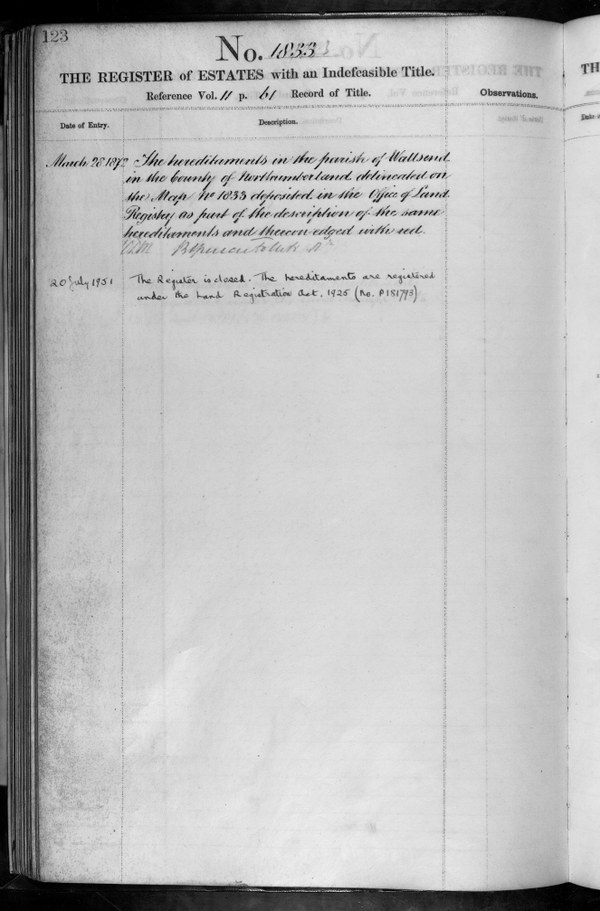 123
No. 1833
THE REGISTER of ESTATES with an Indefeasible Title.
Reference Vol. 11 p. 61 Record of Title.
Observations.
Date of Entry.
Description.
March 28 1872 The hereditaments in the parish of Wallsend
in the County of Northumberland delineated on
the Map No 1833 deposited in the Office of Land
Registry as part of the description of the same
hereditaments and thereon edged with red.
20 July 1951 The Register is closed. The hereditaments are registered
under the Land Registration Act, 1925 (No. P181793)
TH